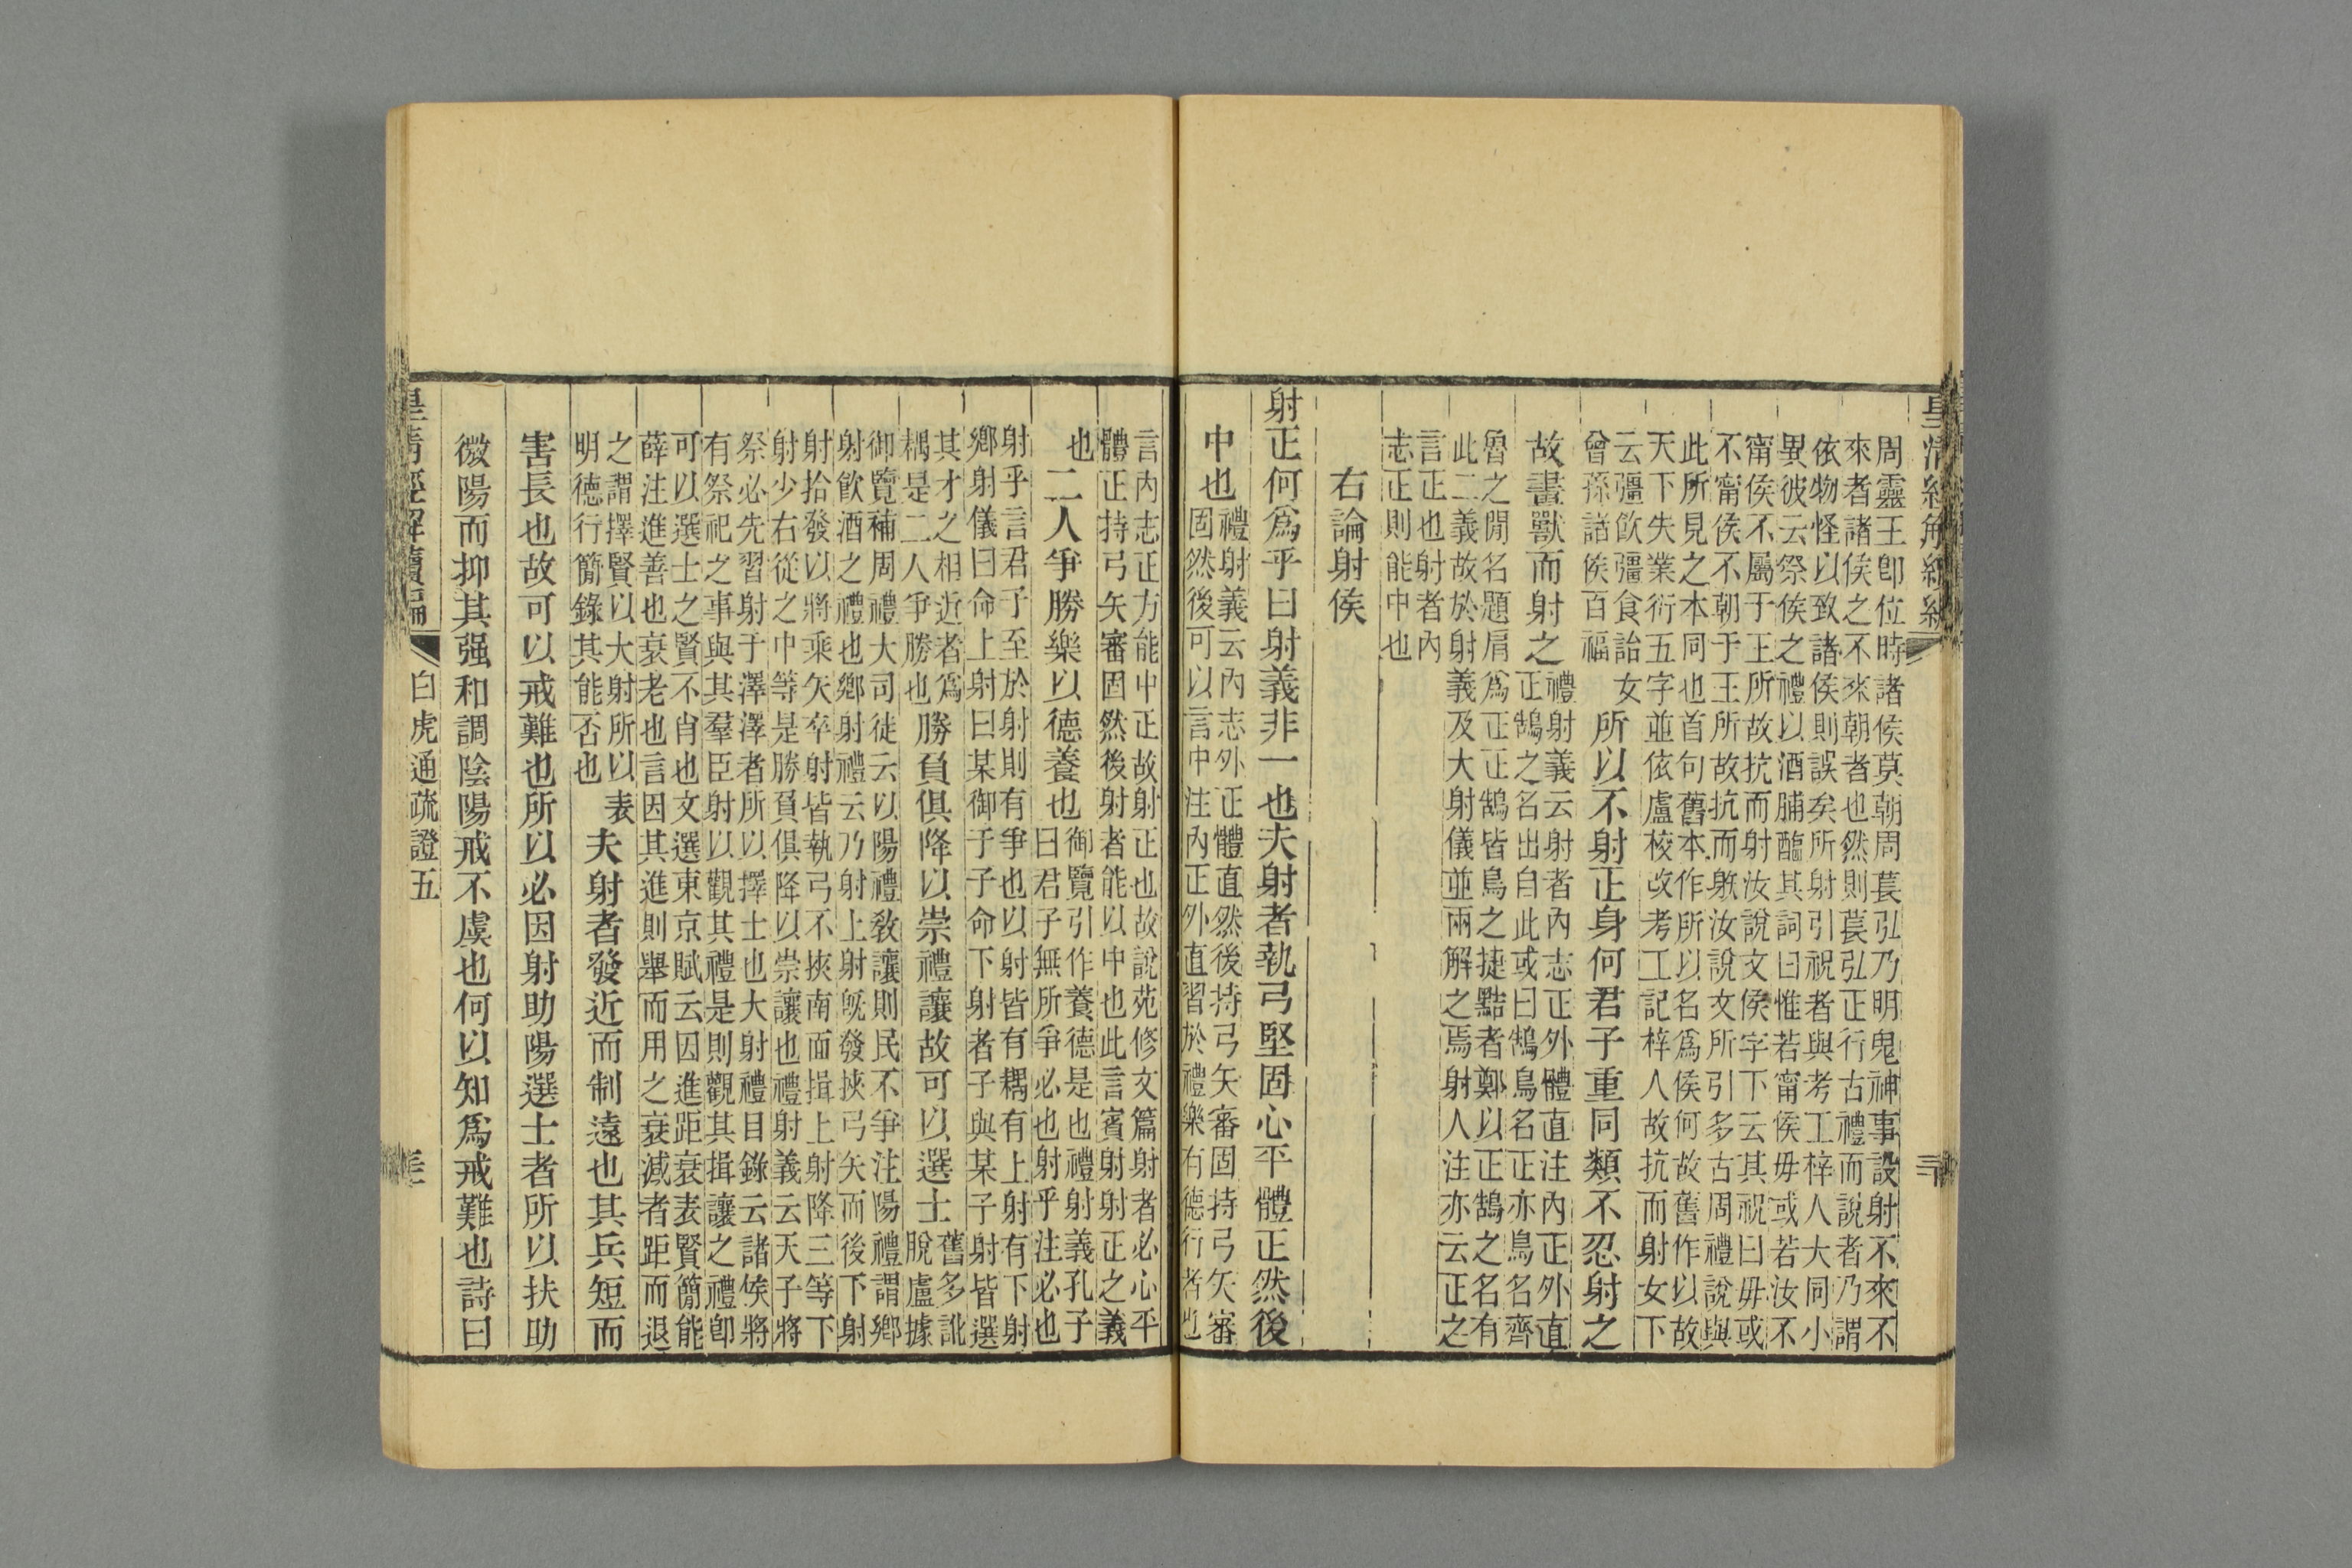 皇清經解續
周靈王卽位時諸侯莫朝周萇弘乃明鬼神事設射不來不
來者諸侯之不來朝者也然則萇弘正行古禮而說者乃謂
依物怪以致諸侯則誤矣所射引祝者與考工梓人大同小
異彼云祭侯之禮以酒脯醢其詞曰惟若甯侯毋或若汝不
甯侯不屬于王所故抗而射汝說文侯字下云其祝曰毋或
不甯侯不朝于王所故抗而躲汝說文所引多古周禮說與
此所見之本同也首句舊本作所以名爲侯何故舊作以故
天下失業衍五字並依盧校改考工記梓人故抗而射女下
云彊飮彊食詒女
曾孫諸侯百福
所以不射正身何君子重同類不忍射之
故畫獸而射之
禮射義云射者內志正外體直注內正外直
正鵠之名出自此或曰鵠鳥名正亦鳥名齊
魯之閒名題肩爲正正鵠皆鳥之捷黠者鄭以正鵠之名有
此二義故於射義及大射儀並兩解之焉射人注亦云正之
言正也射者內
志正則能中也
右論射侯
射正何爲乎曰射義非一也夫射者執弓堅固心平體正然後
中也
禮射義云內志外正體直然後持弓矢審固持弓矢審
固然後可以言中注內正外直習於禮樂有德行者也
言內志正方能中正故射正也故說苑修文篇射者必心平
體正持弓矢審固然後射者能以中也此言賓射射正之義
也
二人爭勝樂以德養也
御覽引作養德是也禮射義孔子
曰君子無所爭必也射乎注必也
射乎言君子至於射則有爭也以射皆有耦有上射有下射
鄉射儀曰命上射曰某御于子命下射者子與某子射皆選
其才之相近者爲
耦是二人爭勝也
勝負俱降以崇禮讓故可以選士
舊多訛
脫盧據
御覽補周禮大司徒云以陽禮敎讓則民不爭注陽禮謂鄉
射飮酒之禮也鄉射禮云乃射上射旣發挾弓矢而後下射
射拾發以將乘矢卒射皆執弓不挾南面揖上射降三等下
射少右從之中等是勝負俱降以崇讓也禮射義云天子將
祭必先習射于澤澤者所以擇士也大射禮目錄云諸侯將
有祭祀之事與其羣臣射以觀其禮是則觀其揖讓之禮卽
可以選士之賢不肖也文選東京賦云因進距衰表賢簡能
薛注進善也衰老也言因其進則舉而用之衰減者距而退
之謂擇賢以大射所以表
明德行簡錄其能否也
夫射者發近而制遠也其兵短而
害長也故可以戒難也所以必因射助陽選士者所以扶助
微陽而抑其强和調陰陽戒不虞也何以知爲戒難也詩曰
皇清經解續編
白虎通疏證五